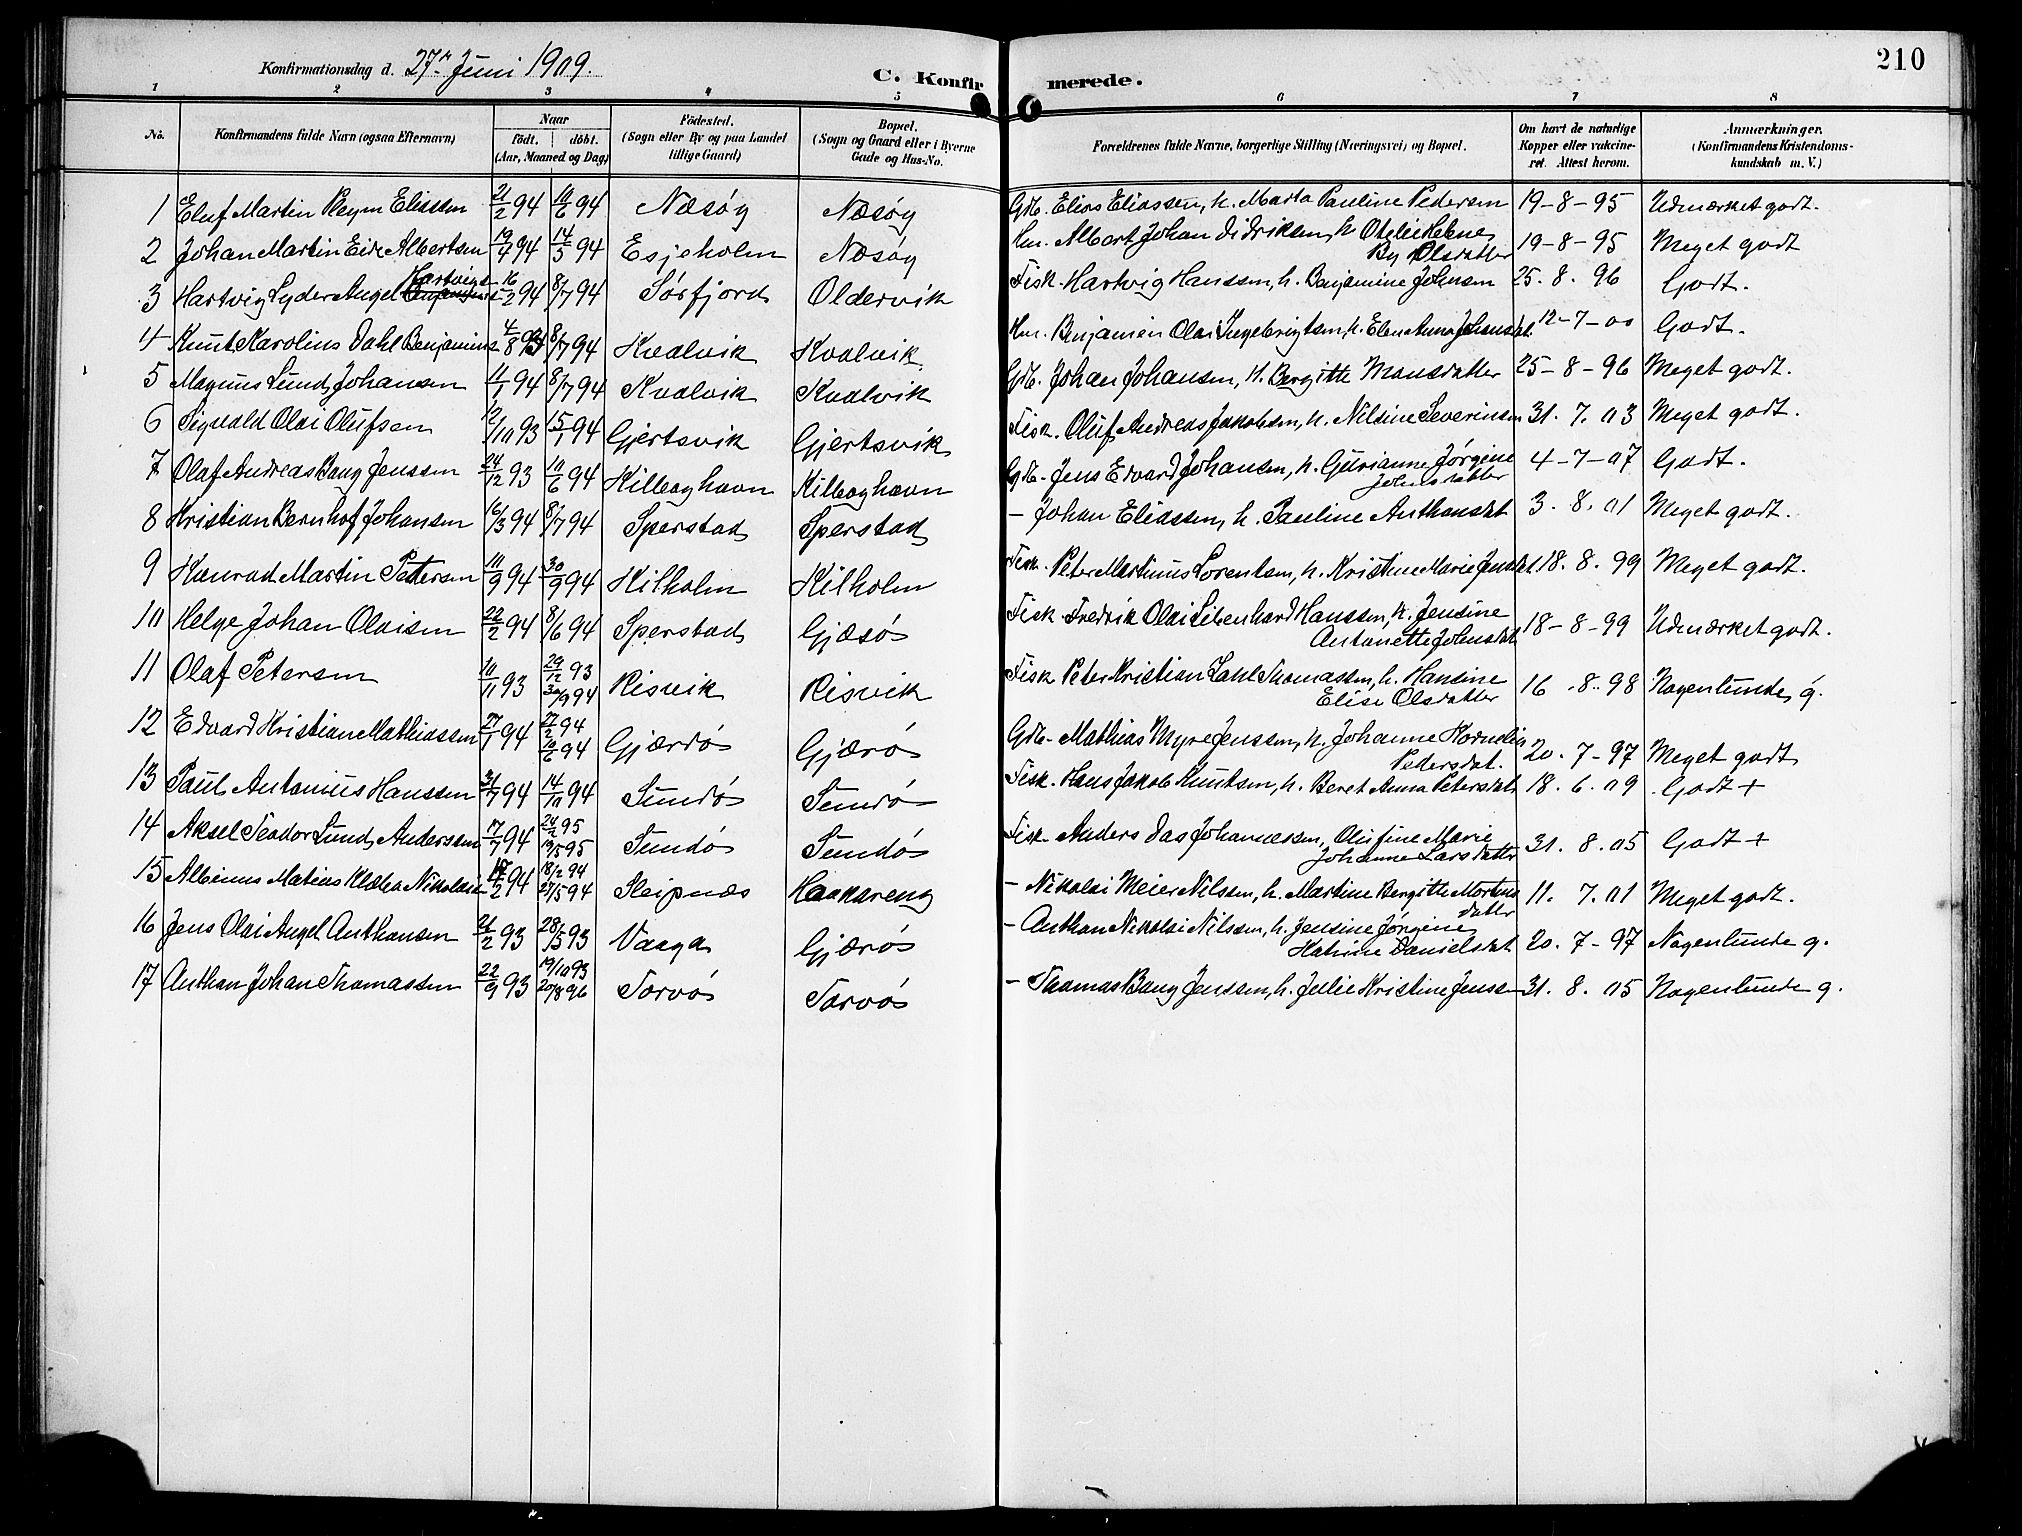 210
Konfirmationsdag d. 27de Juni 1909.
C. Konfirmerede.
1 2 3 4 5 6 7 8
No. Konfirmandens fulde Navn (ogsaa Efternavn) Naar födt. döbt. (Aar, Maaned og Dag) Födested. (Sogn eller By og paa Landet tillige Gaard) Bopæl. (Sogn og Gaard eller i Byerne Gade og Hus-No. Forældrenes fulde Navne, borgerlige Stilling (Næringsvei) og Bopæl. Om havt de naturlige Kopper eller vakcineret. Attest herom. Anmærkninger. (Konfirmandens Kristendomskundskab m. V.)
1 Eluf Martin Eliassen 21/2 94 10/6 94 Næsøy Næsøy Gdb. Elias Eliassen, h. Marta Pauline Pedersen 19-8-95 Udmærket godt.
2 Johan Martin Eide Albertsen 19/4 94 14/5 94 Esjeholm Næsøy Hm. Albert Johan Didriksen, h. Otelie Helene
By Olsdatter 19-8-95 Meget godt
3 Hartvig Lyder Angel Hartvigs 16/2 94 8/7 94 Sørfjord Oldervik Fisk. Hartvig Hanssen, h. Benjamine Johnsen 25.8.96 Godt.
4 Knut Karolius Dahl Benjamins 4/8 93 8/7 94 Kvalvik Kvalvik. Hm. Benjamin Olai Ingebrigtsen, h. Elen Anna Johansdt. 12-7-00 Godt.
5 Magnus Lund Johansen 11/1 94 8/7 94 Kvalvik Kvalvik Gdb. Johan Johansen, h. Bergitte Monsdatter 25-8-96 Meget godt.
6 Sigvald Olai Olufsen 12/10 93 15/1 94 Gjertsvik Gjertsvik Fisk. Oluf Andreas Jakobsen, h. Nilsine Severinsen 31.7.03 Meget godt.
7 Olaf Andreas Bang Jenssen 24/12 93 10/6 94 Kilboghavn Kilboghavn Gdb. Jens Edvard Johansen, h. Gurianne Jørgine
Johnsdatter 4-7-07 Godt.
8 Kristian Bernhof Johansen 16/3 94 8/7 94 Sperstad Sperstad - Johan Eliassen, h. Pauline Anthonsdt 3.8.01 Meget godt.
9 Konrad Martin Petersen 10/9 94 30/9 94 Kilholm Kilholm Fisk. Peter Martinus Lorentsen, h. Kristine Marie Jensdt. 18.8.99 Meget godt.
10 Helge Johan Olaisen 22/2 94 8/6 94 Sperstad Gjæsø Fisk. Fredrik Olai Hanssen, h. Jensine
Antonette Johnsdat 18-8-99 Udmærket godt.
11 Olaf Petersen 10/11 93 29/12 93 30/9 94 Risvik Risvik Fisk Peter Kristian Dahl Thomassen, h. Hansine
Elise Olsdatter 16.8.98 Nogenlunde g.
12 Edvard Kristian Mathiassen 27/1 94 27/2 94 10/6 94 Gjærdø Gjærø Gdb. Mathias Myre Jenssen, h. Johanne Kornelia
Pedersdat. 20.7-97 Meget godt
13 Paul Antonius Hanssen 31/7 94 14/10 94 Sundø Sundø Fisk. Hans Jakob Knutsen, h. Beret Anna Petersdat 18.6.09 Godt +
14 Aksel Teodor Lund Anderssen 17/7 94 24/2 95 19/5 95 Sundø Sundø Fisk. Anders Das Johannessen, Olufine Marie
Johanne Larsdatter 31.8.05 Godt +
15 Albinus Matias Nikolais 94 18/2 94 27/5 94 Sleipnes Haakareng - Nikolai Meier Nilssen, h. Martine Bergitte Mortens
datter 11.7.01 Meget godt.
16 Jens Olai Angel Anthonsen 21/2 93 28/5 93 Vaaga Gjærø - Anthon Nikolai Nilssen, h. Jensine Jørgine
Katrine Danielsdat 20.7-97 Nogenlunde g.
17 Anthon Johan Thomassen 22/9 93 19/10 93 20/8 96 Torvø Torvø - Thomas Bang Jenssen, h. Julie Kristine Jenssen 31.8.05 Nogenlunde g.